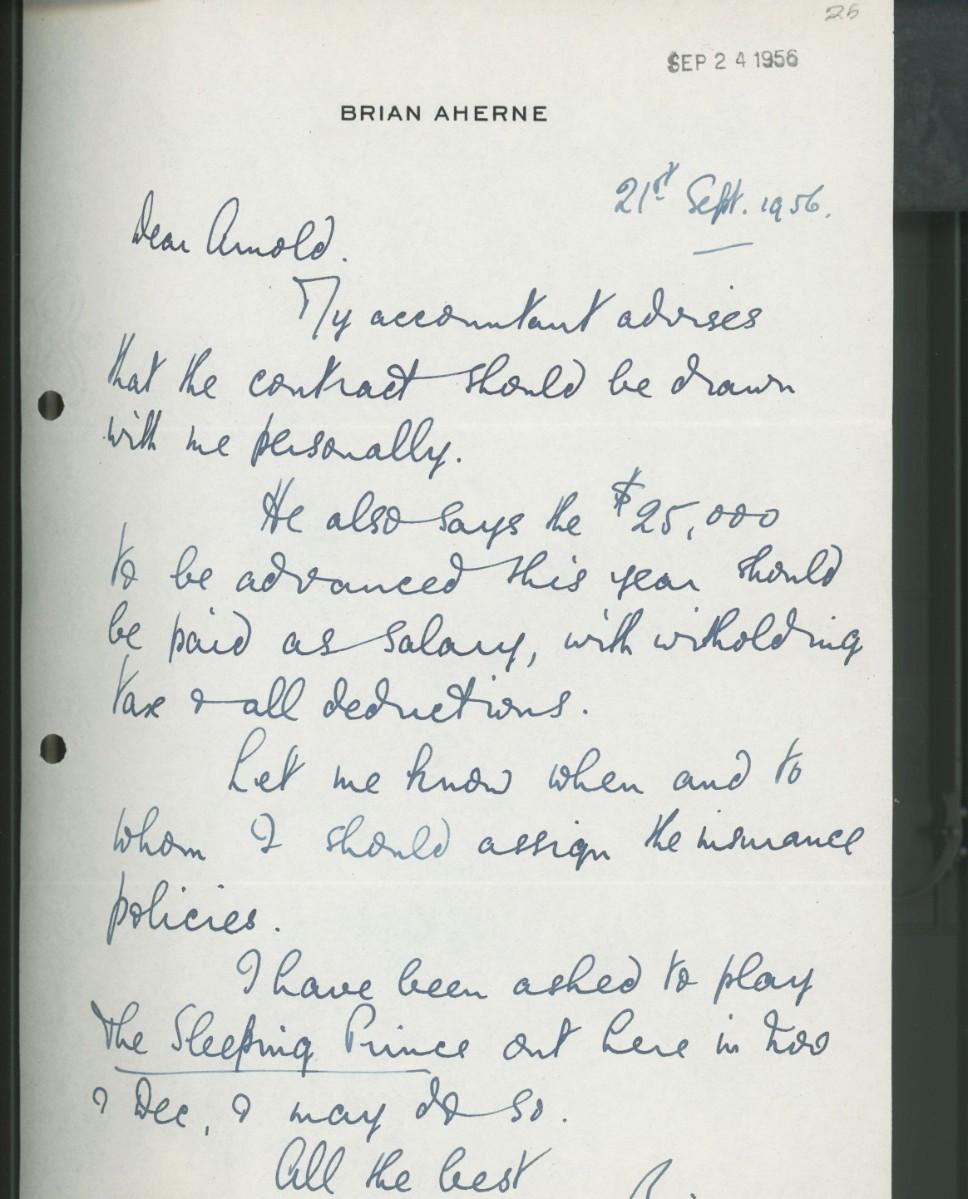 25
SEP 24 1956
BRIAN AHERNE
21st Sept. 1956.
Dear Arnold.
My accountant advises
that the contract should be drawn
with me personally.
He also says the $25,000
to be advanced this year should
be paid as salary, with witholding
tax & all deductions.
Let me know when and to
whom I should assign the insurance
policies.
I have been asked to play
The Sleeping Prince out here in Nov
& Dec, & may do so.
All the best